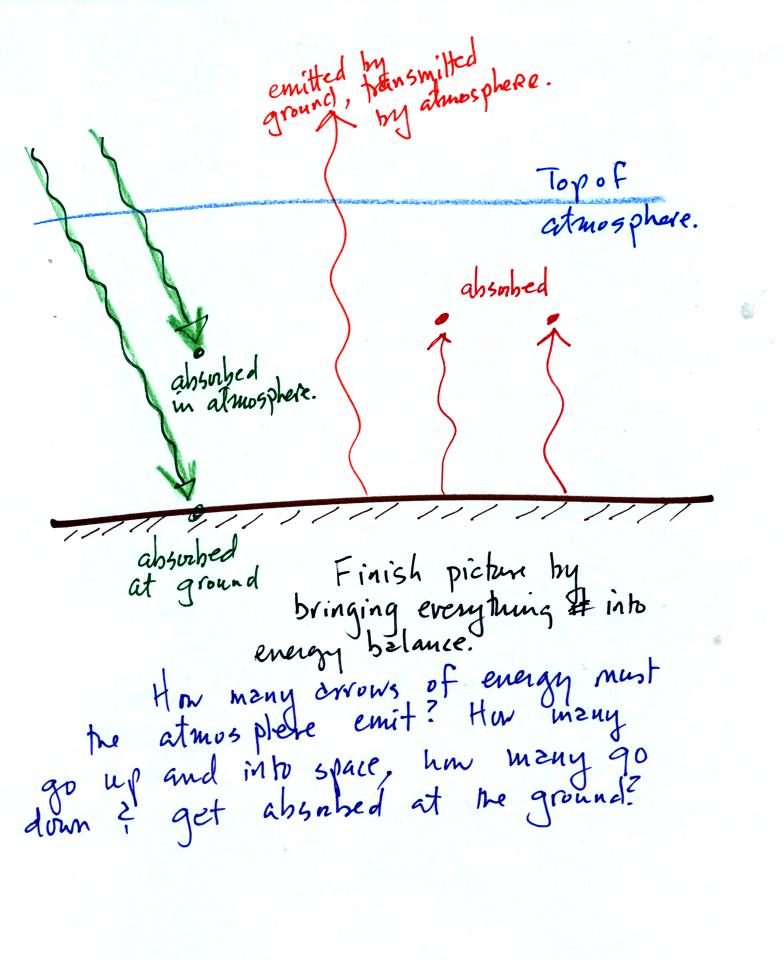 emitted by
ground, transmitted
by atmosphere.
Top of
atmosphere.
absorbed
absorbed
in atmosphere.
absorbed
at ground
Finish picture by
bringing everything into
energy balance.
How many arrows of energy must
the atmosphere emit? How many
go up and into space, how many go
down & get absorbed at the ground?